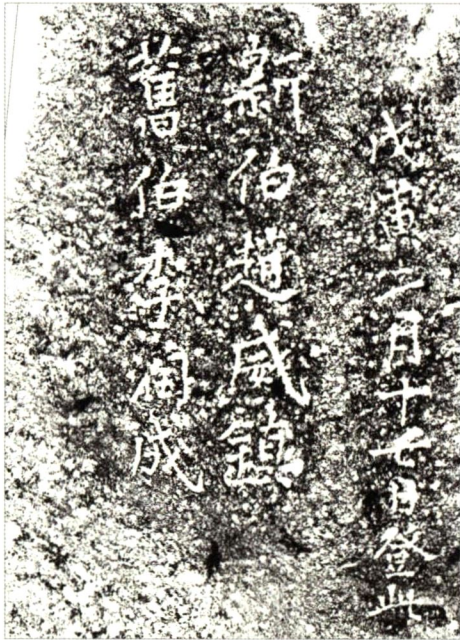 戊寅二月十七日登此
新伯趙威鎮
舊伯李成